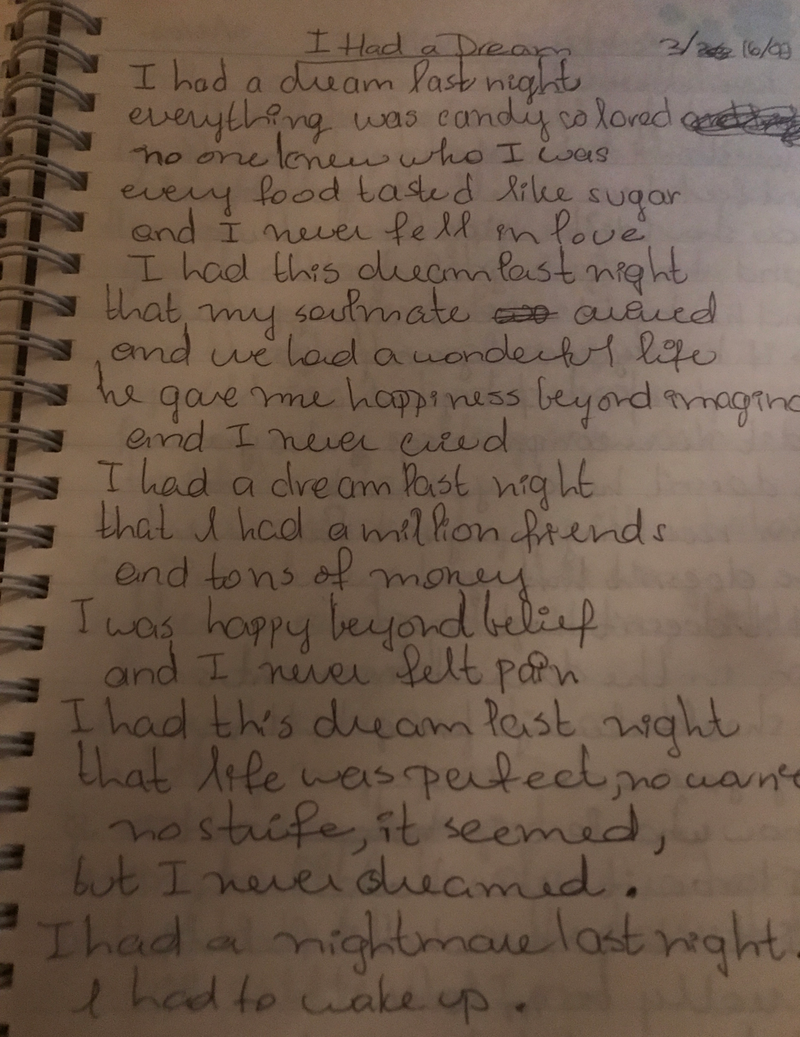 I Had a Dream 3/16/03
I had a dream last night
everything was candy colored
no one knew who I was
every food tasted like sugar
and I never fell in love
I had this dream last night
that my soulmate arrived
and we had a wonderful life
he gave me happiness beyond imagin
and I never cried
I had a dream last night
that I had a million friends
and tons of money
I was happy beyond belief
and I never felt pain
I had this dream last night
that life was perfect, no want
no strife, it seemed,
but I never dreamed.
I had a nightmare last night.
I had to wake up.